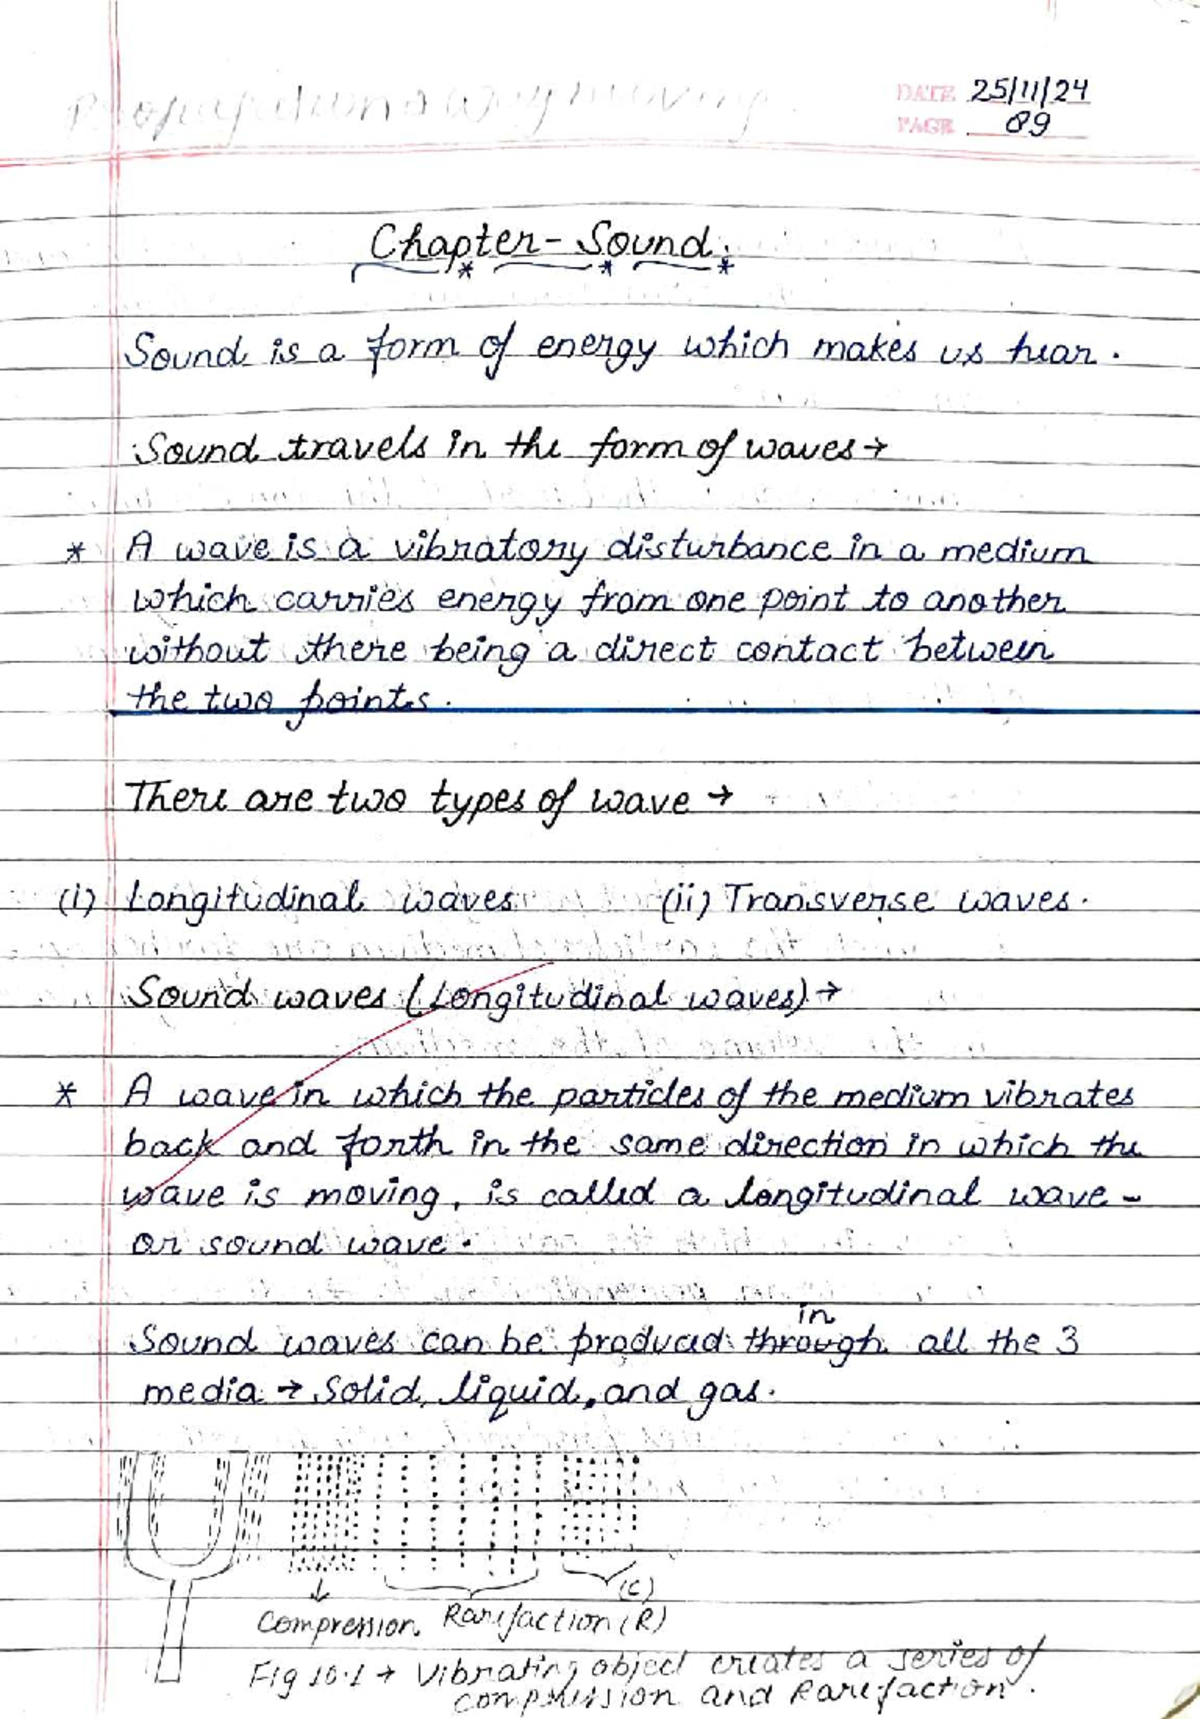 Propagation → Way moving.
DATE 25/11/24
PAGE 89
Chapter - Sound.
Sound is a form of energy which makes us hear.
Sound travels in the form of waves →
* A wave is a vibratory disturbance in a medium
which carries energy from one point to another
without there being a direct contact between
the two points.
There are two types of wave →
(i) Longitudinal waves (ii) Transverse waves.
Sound waves (Longitudinal waves) →
* A wave in which the particles of the medium vibrates
back and forth in the same direction in which the
wave is moving, is called a longitudinal wave -
or sound wave.
in
Sound waves can be produced through all the 3
media → Solid, liquid, and gas.
(C)
Compression Rarefaction (R)
Fig 10.1 → Vibrating object creates a series of
compression and Rarefaction.